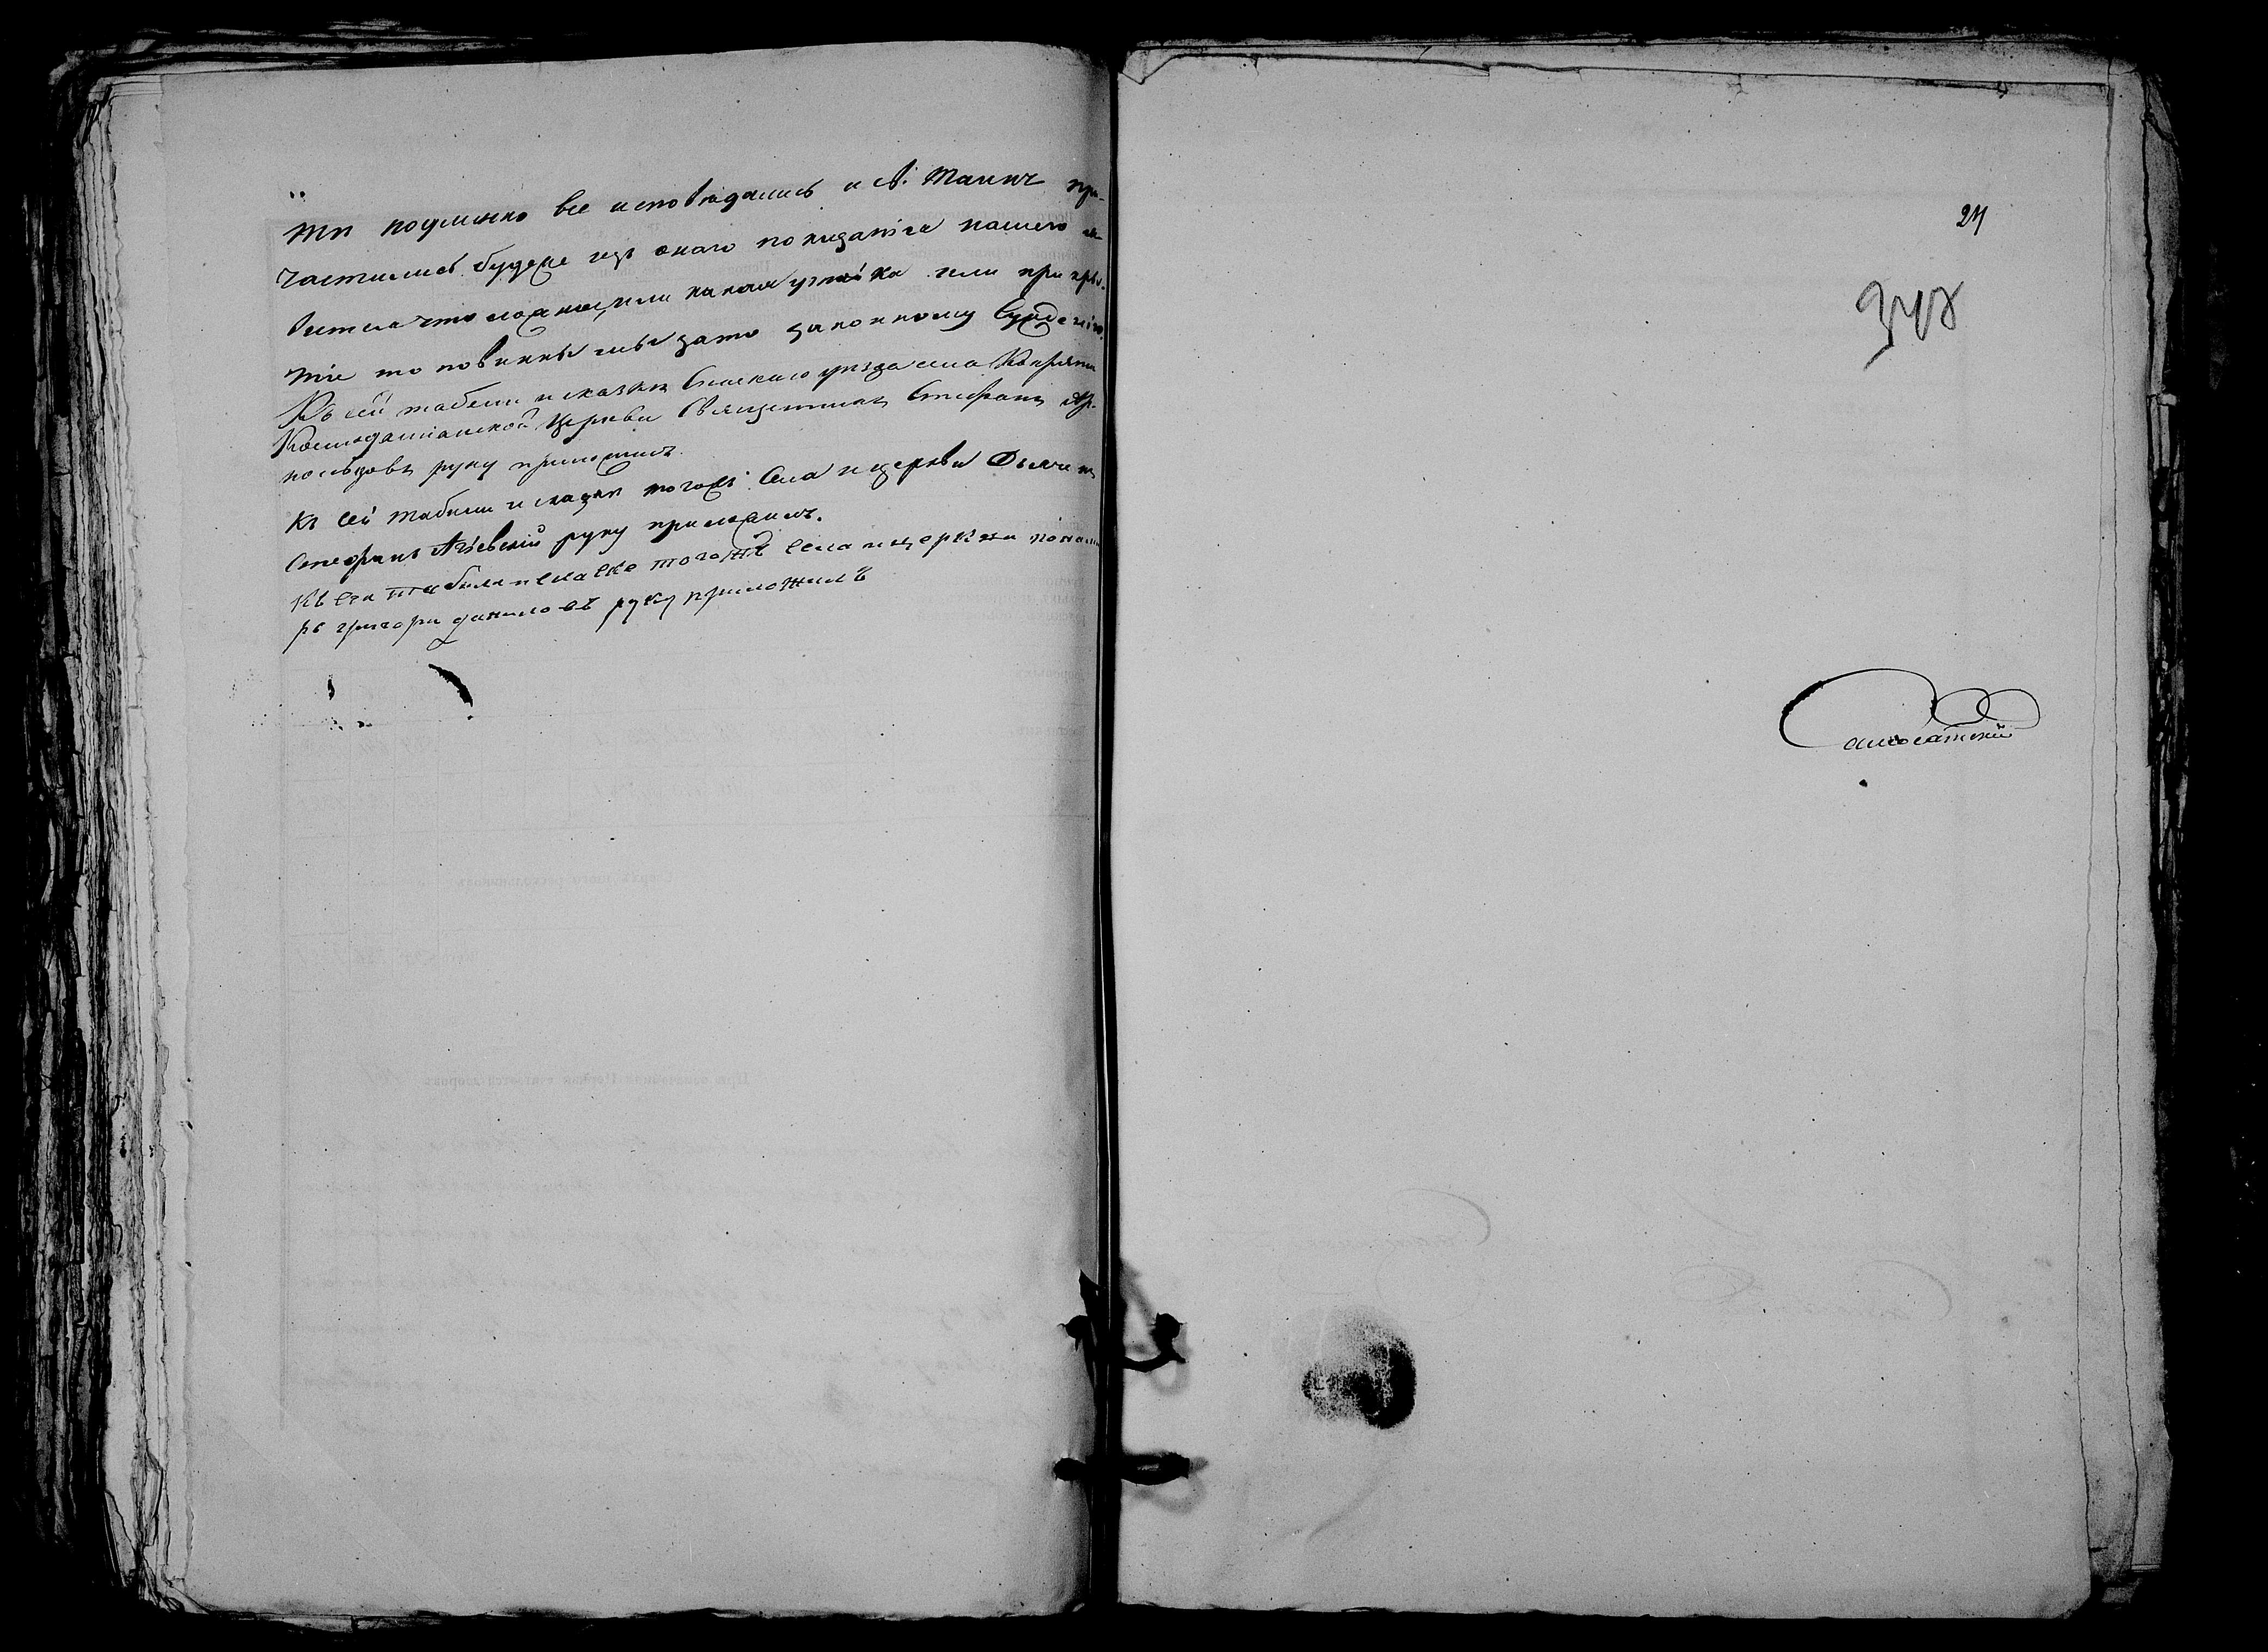 ти подлинно все исповѣдались и св. Таинъ при-
частились. будеже изъ онаго показанія нашего я-
вится что ложное, или какая утайка или прикры-
тіе то повинны мы зато законному сужденію.
Къ сей табели и сказкѣ уѣзда села
Космодаміанской Церкви Священникъ Стефанъ
руку приложилъ.
къ сей табели и сказкѣ тогожъ села и церкви Дьячекъ
Стефанъ руку приложилъ.
къ сеи табили и скаске тогожъ села и церкви понома
рь григори даниловъ руку приложилъ
24
348